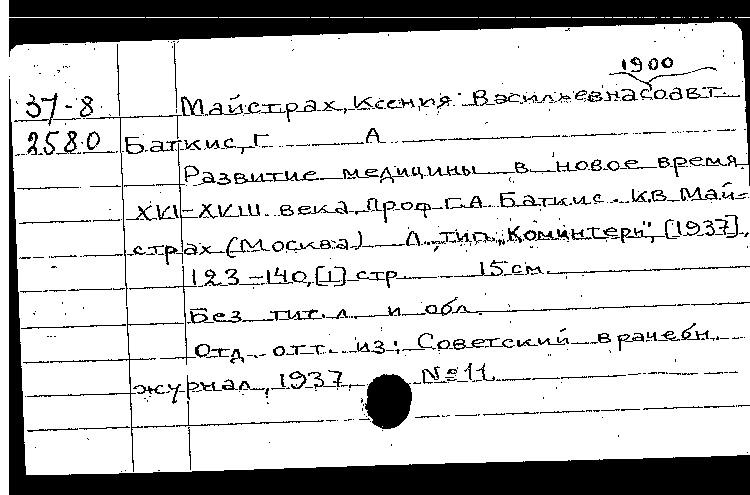 1900
37-8 Майстрах, Ксения Васильевна соавт.
2580 Баткис, Г. А
Развитие медицины в новое время
XVI-XVIII века. Проф Г.А. Баткис. К.В. Май-
страх (Москва) Л, тип. „Коминтерн", [1937].
123-140, [1] стр 15 см.
Без тит. л. и обл.
Отд. отт. из: Советский врачебн.
журнал, 1937, №11